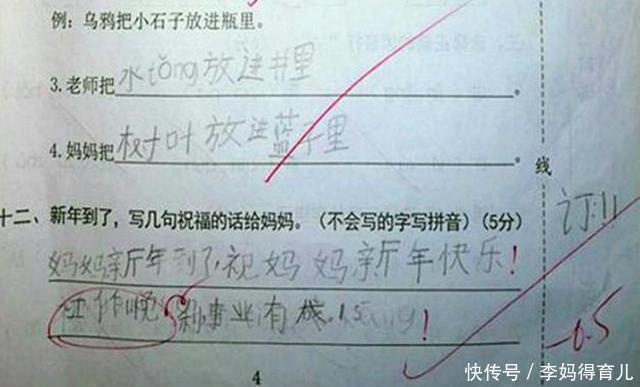 例：乌鸦把小石子放进瓶里。
3.老师把水tǒng放进井里。
4.妈妈把树叶放进蓝子里。
线
十二、新年到了，写几句祝福的话给妈妈。（不会写的字写拼音）（5分）
订!!
妈妈新年到了，祝妈妈新年快乐！
工作 事业有 ！
-0.5
4
快传号／李妈得育儿